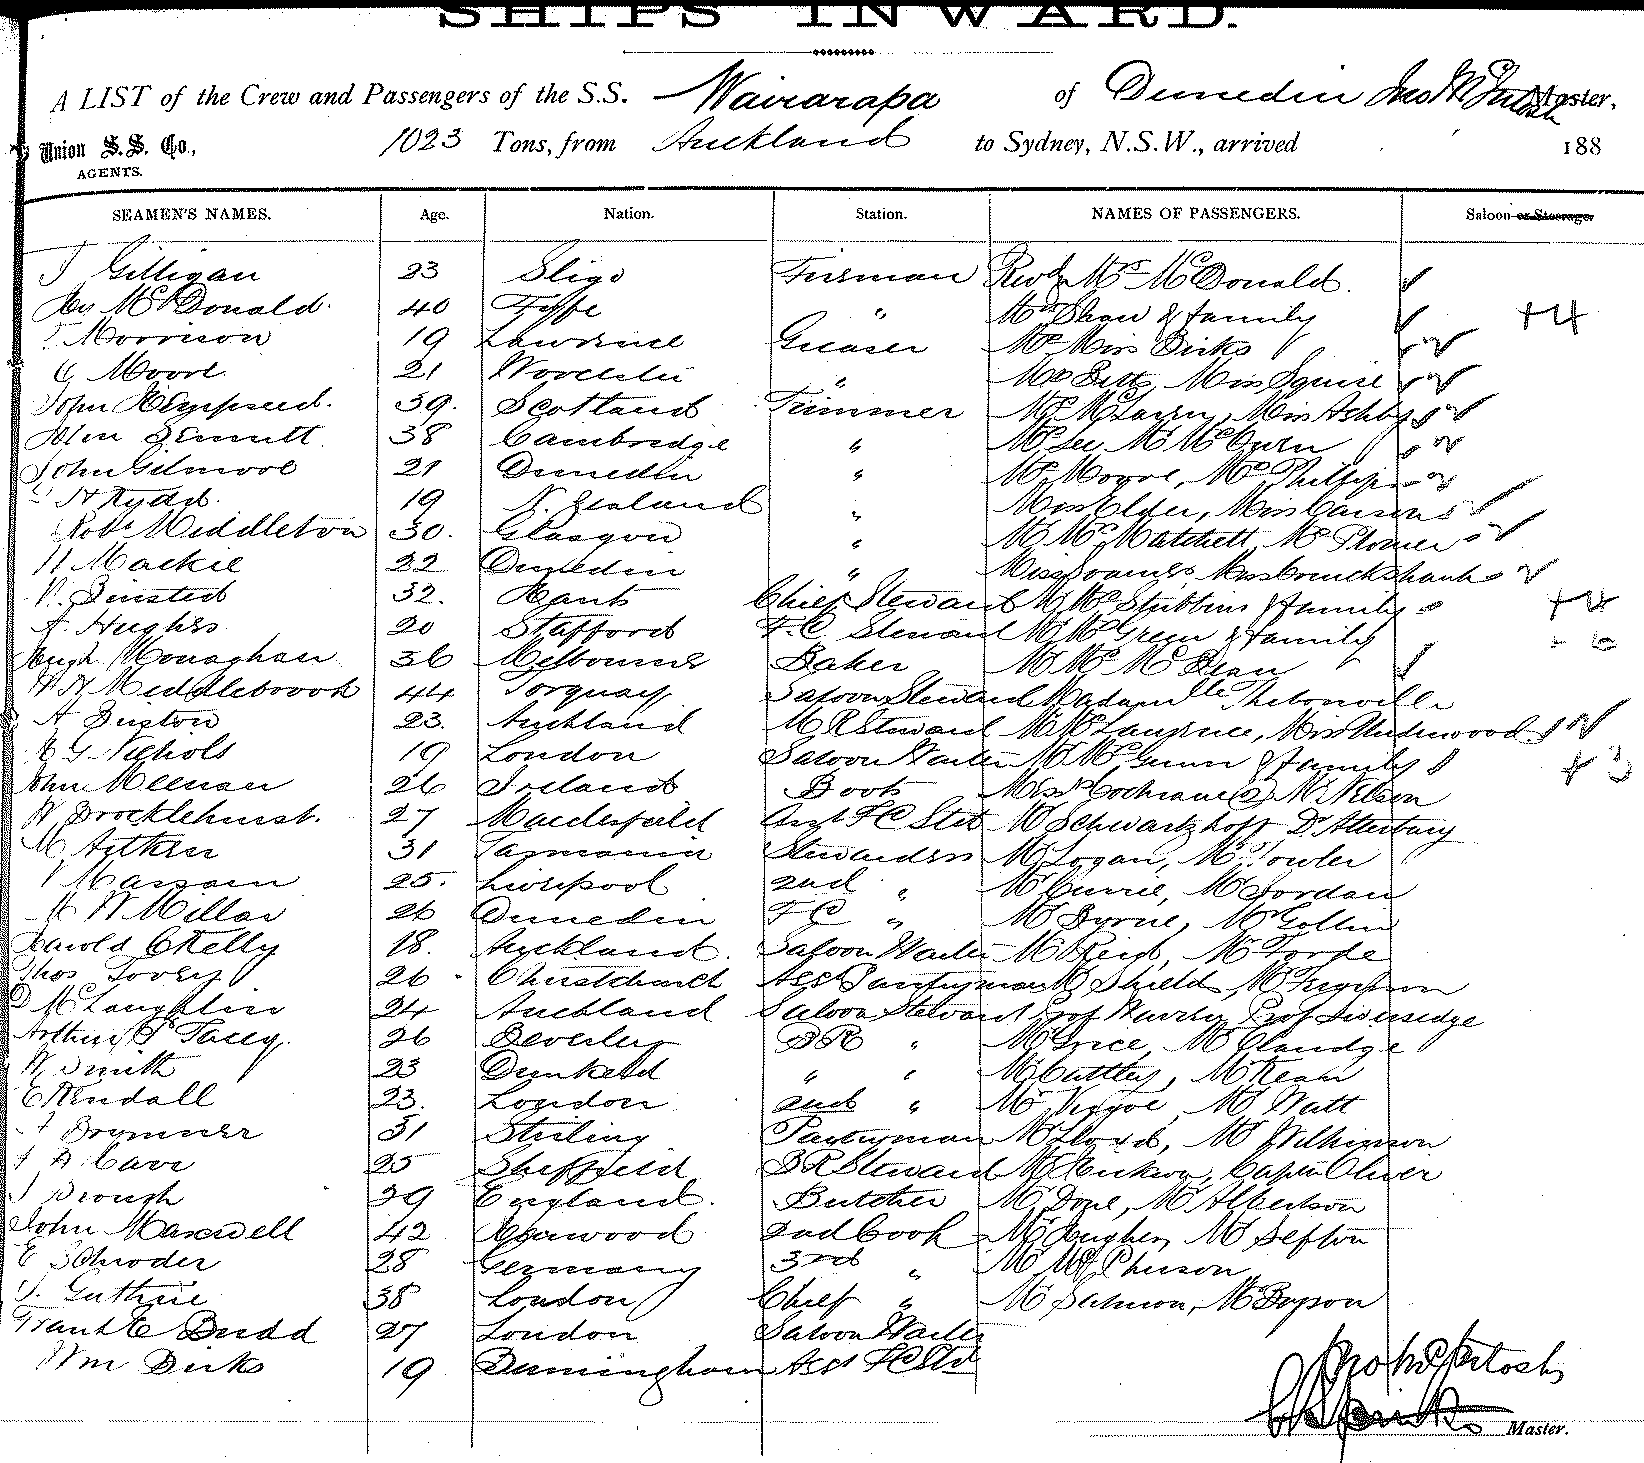 SHIPS INWARD.
A LIST of the Crew and Passengers of the S.S. Wairarapa of Dunedin Jno McIntosh Master,
Union S.S. Co., 1023 Tons, from Auckland to Sydney, N.S.W., arrived 188
AGENTS.
SEAMEN'S NAMES. Age. Nation. Station. NAMES OF PASSENGERS. Saloon or Steerage
J Gilligan 23 Sligo Fireman Revd Mr McDonald.
Hy McDonald. 40 Fyffe " Mrs Shaw & family +4
Morrison 19 Lawrence Greaser Mr Miss Dicks
G Moore 21 Worcester " Mrs Betts, Miss Squire
John 39. Scotland Trimmer Miss Ashby
John 38 Cambridge " Mr Lee
John Gilmore 21 Dunedin " Mr Moore, Mr Phillips
H Kydd. 19 N. Zealand " Miss Elder, Miss Carson
Robt Middleton 30. Glasgow " Mr Mrs Matchett
H Mackie 22 Dunedin " Miss Miss Cruickshank
Binsted 32. Hants Chief Steward Mr Mrs Stubbins & family +4
A. Hughes 20 Stafford F.C. Steward Mr Mrs Green & family
Hugh Monaghan 36 Melbourne Baker Mr Mrs McLean
W H Middlebrook 44 Torquay Saloon Steward Madame
A Buston 23. Auckland Steward Mr Mrs Laurence, Miss Underwood
G. Nichols 19 London Saloon Waiter Mr Mrs Gunn & family +3
John Meenan 26 Ireland Boots Miss Cochrane (2) Mr Nelson
W Brocklehurst. 27 Macclesfield Asst FC Std Mr Schwartzkoff Dr Atterbury
M Aitken 31 Tasmania Stewardess Mr Logan, Mr Fowler
25. Liverpool 2nd " Mr Currie, Mr Jordan
W Millar 26 Dunedin FC " Mr Byrne, Mr Gollin
Harold C Kelly 18. Auckland. Saloon Waiter Mr Reid, Mr Forde
Thos 26 Christchurch Asst Pantryman Mr Shield, Mr Ferguson
McLaughlin 24 Auckland Saloon Steward Prof Prof Liversidge
Arthur Tacey. 26 Beverley BR " Mr Price, Mr Claudge
W. Smith 23 Dunkeld " " Mr Cuttley, Mr Kean
E Kendall 23. London 2nd " Mr Mr Watt
Bremner 31 Stirling Pantryman Mr Lloyd, Mr Wilkinson
Carr 25 Sheffield BR Steward Captn Oliver
J Brough 29 England. Butcher Mr Done, Mr Albertson
John Maxwell 42 2nd Cook Mr Hughes, Mr Sefton
E Schroder 28 Germany 3rd " Mr McPherson
J. Guthrie 38 London Chief " Mr Salmon, Mr Dyson
Grant E Budd 27 London Saloon Waiter
Wm Dicks 19 Birmingham Asst FC Std
Jno McIntosh
Master.